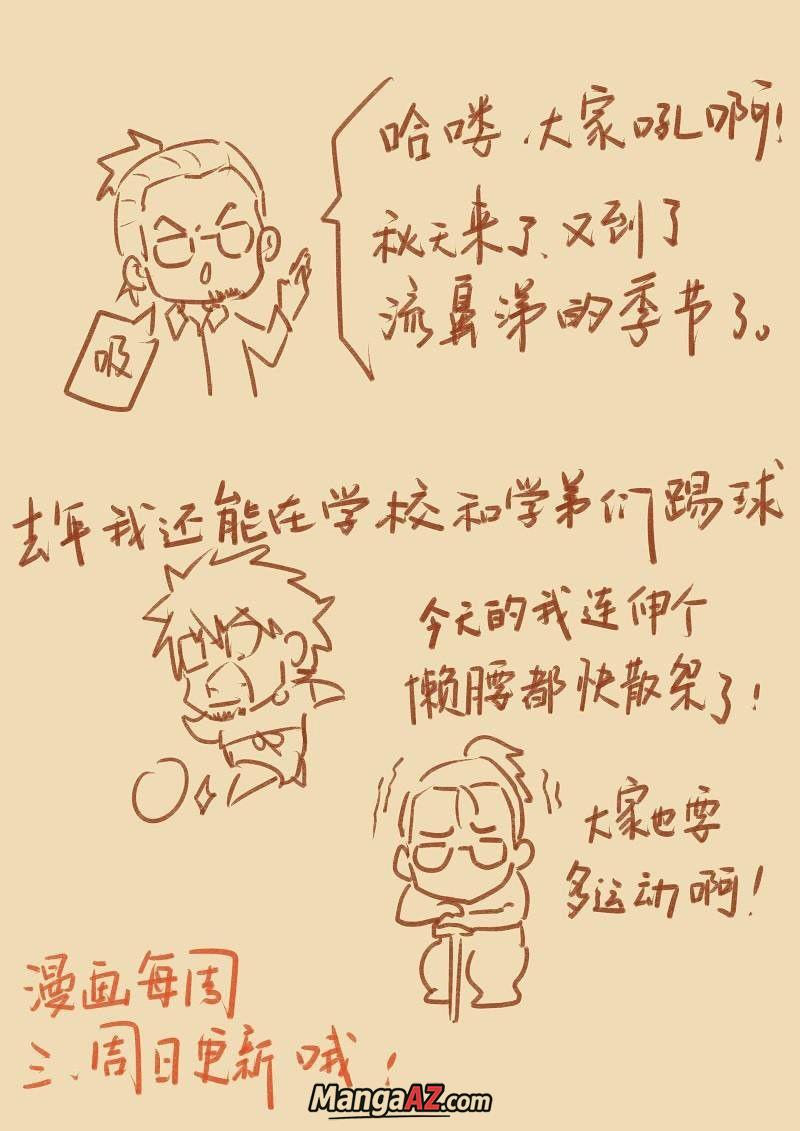 哈喽、大家吼啊！
秋天来了、又到了
流鼻涕的季节了。
吸
去年我还能在学校和学弟们踢球
今天的我连伸个
懒腰都快散架了！
大家也要
多运动啊！
漫画每周
三、周日更新哦！
MangaAZ.com